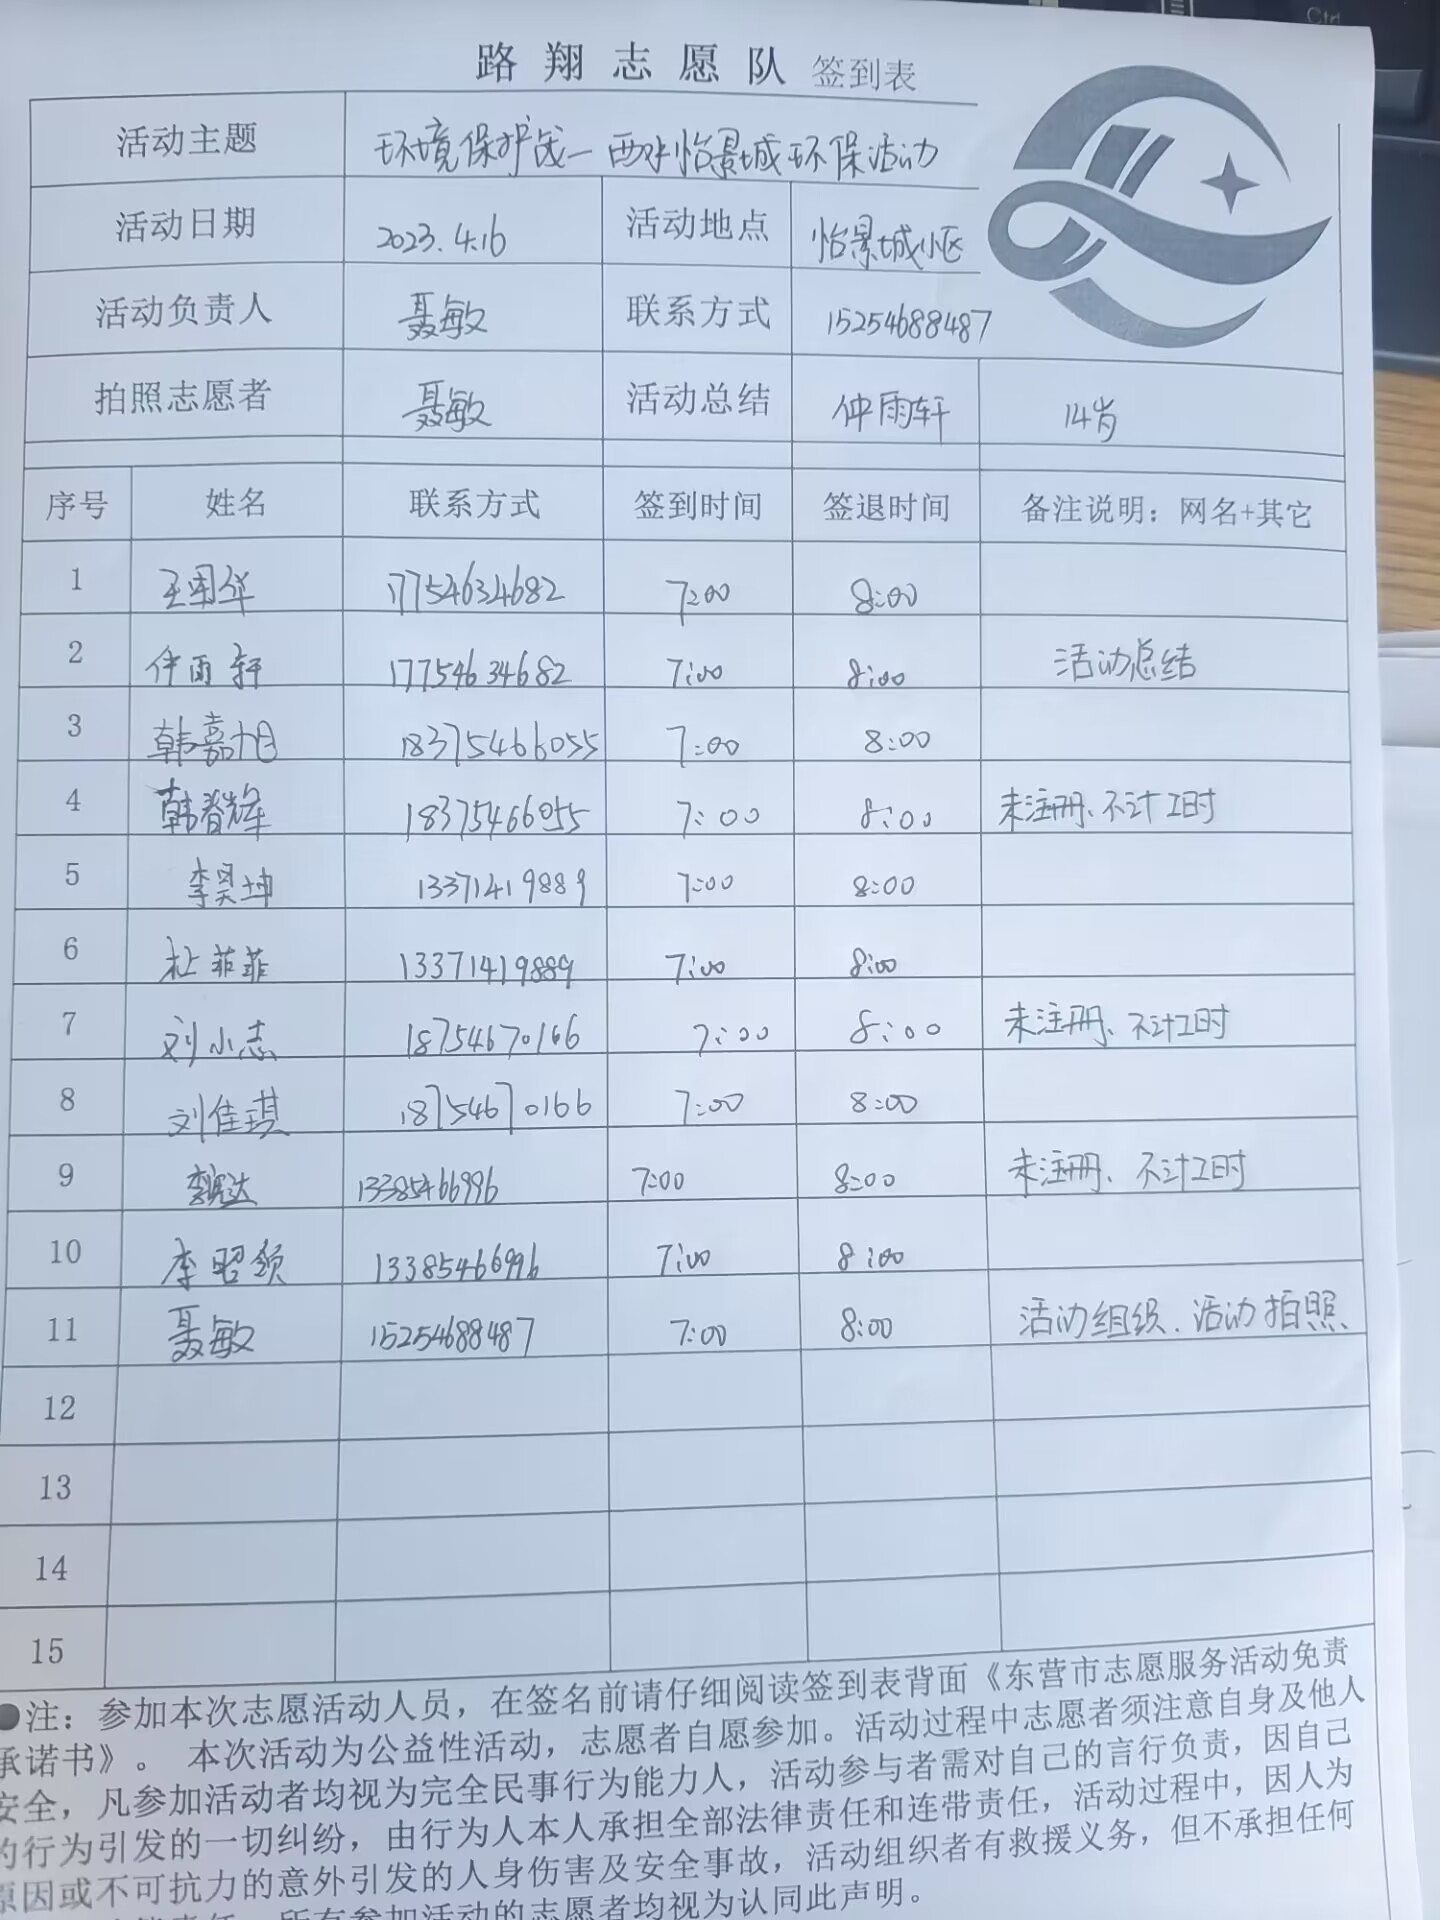 路翔志愿队 签到表
活动主题 环境保护战一西水怡景城环保活动
活动日期 2023.4.16 活动地点 怡景城小区
活动负责人 聂敏 联系方式 15254688487
拍照志愿者 聂敏 活动总结 仲雨轩 14岁
序号 姓名 联系方式 签到时间 签退时间 备注说明：网名+其它
1 王国华 17754634682 7:00 8:00
2 仲雨轩 17754634682 7:00 8:00 活动总结
3 韩嘉旭 18375466055 7:00 8:00
4 韩春辉 18375466055 7:00 8:00 未注册、不计工时
5 李昊坤 13371419889 7:00 8:00
6 杜菲菲 13371419889 7:00 8:00
7 刘小志 18754670166 7:00 8:00 未注册、不计工时
8 刘佳琪 18754670166 7:00 8:00
9 李 达 13385466996 7:00 8:00 未注册、不计工时
10 李昭颔 13385466996 7:00 8:00
11 聂敏 15254688487 7:00 8:00 活动组织、活动拍照、
12
13
14
15
●注：参加本次志愿活动人员，在签名前请仔细阅读签到表背面《东营市志愿服务活动免责
承诺书》。 本次活动为公益性活动，志愿者自愿参加。活动过程中志愿者须注意自身及他人
安全，凡参加活动者均视为完全民事行为能力人，活动参与者需对自己的言行负责，因自己
的行为引发的一切纠纷，由行为人本人承担全部法律责任和连带责任，活动过程中，因人为
原因或不可抗力的意外引发的人身伤害及安全事故，活动组织者有救援义务，但不承担任何
责任，所有参加活动的志愿者均视为认同此声明。
Ctrl